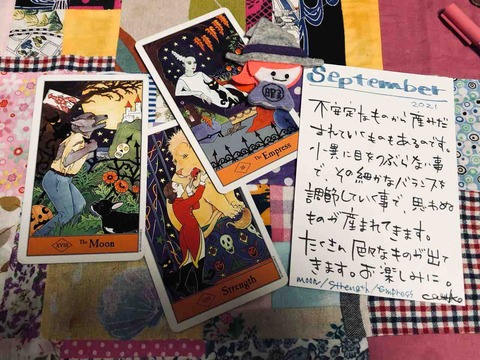 XVIII The Moon
The Empress
Strength
September
2021
不安定なものから産みだ
されていくものもあるのです。
小異に目をつぶらない事
で、その細かなバランスを
調節していく事で、思わぬ
ものが産まれてきます。
たくさん色々なものが出て
きます。お楽しみに!
moon/strength/Empress